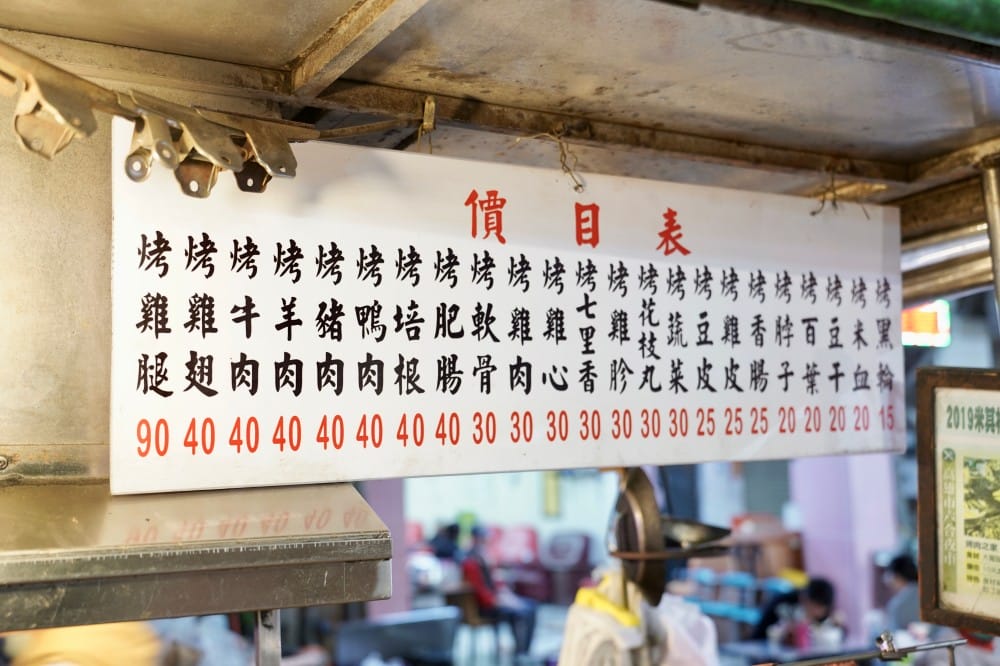 價目表
烤雞腿 90
烤雞翅 40
烤牛肉 40
烤羊肉 40
烤豬肉 40
烤鴨肉 40
烤培根 40
烤肥腸 40
烤軟骨 30
烤雞肉 30
烤雞心 30
烤七里香 30
烤雞胗 30
烤花枝丸 30
烤蔬菜 30
烤豆皮 25
烤雞皮 25
烤香腸 25
烤脖子 20
烤百葉 20
烤豆干 20
烤米血 20
烤黑輪 15
2019米其